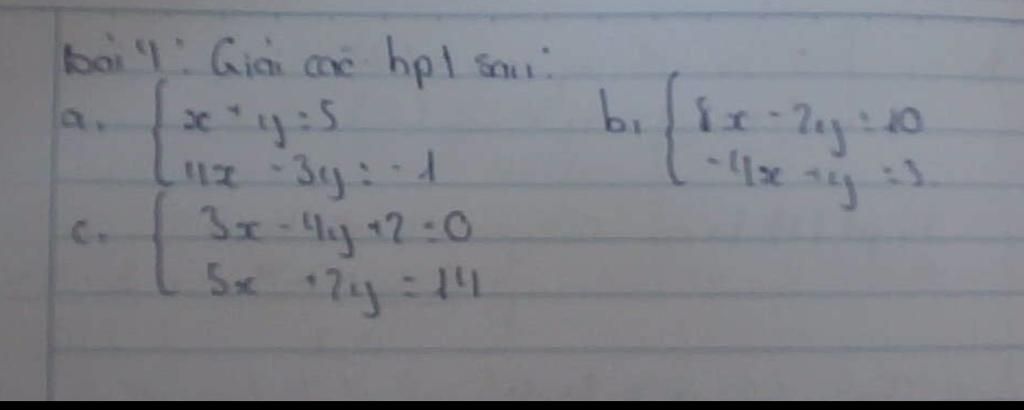 bài 4: Giải các hpt sau:
a. { x + y = 5
4x - 3y = -1
b, { 8x - 2y = 10
-4x + y = 3
c. { 3x - 4y + 2 = 0
5x + 2y = 14